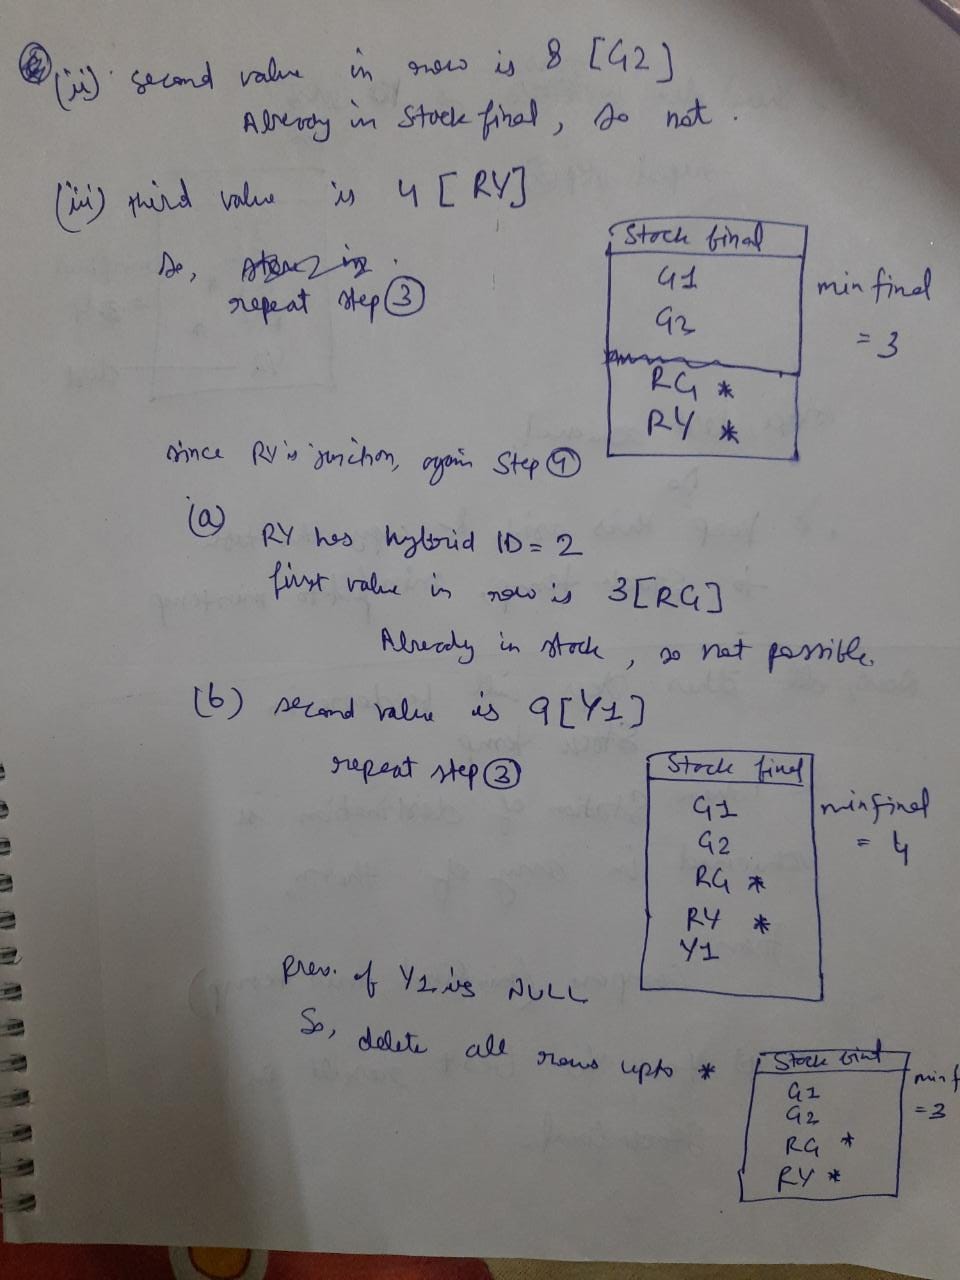 (ii) second value in row is 8 [G2]
Already in Stock final, so not.
(iii) third value is 4 [RY]
So,
repeat step ③
Stock final
G1
G2
RG *
RY *
min final
= 3
since RY is junction, again Step ④
(a)
RY has hybrid ID = 2
first value in row is 3[RG]
Already in stock, so not possible.
(b) second value is 9[Y1]
repeat step ③
Stock final
G1
G2
RG *
RY *
Y1
min final
= 4
Prev. of Y1 is NULL
So, delete all rows upto *
Stock
G1
G2
RG *
RY *
min f
=3